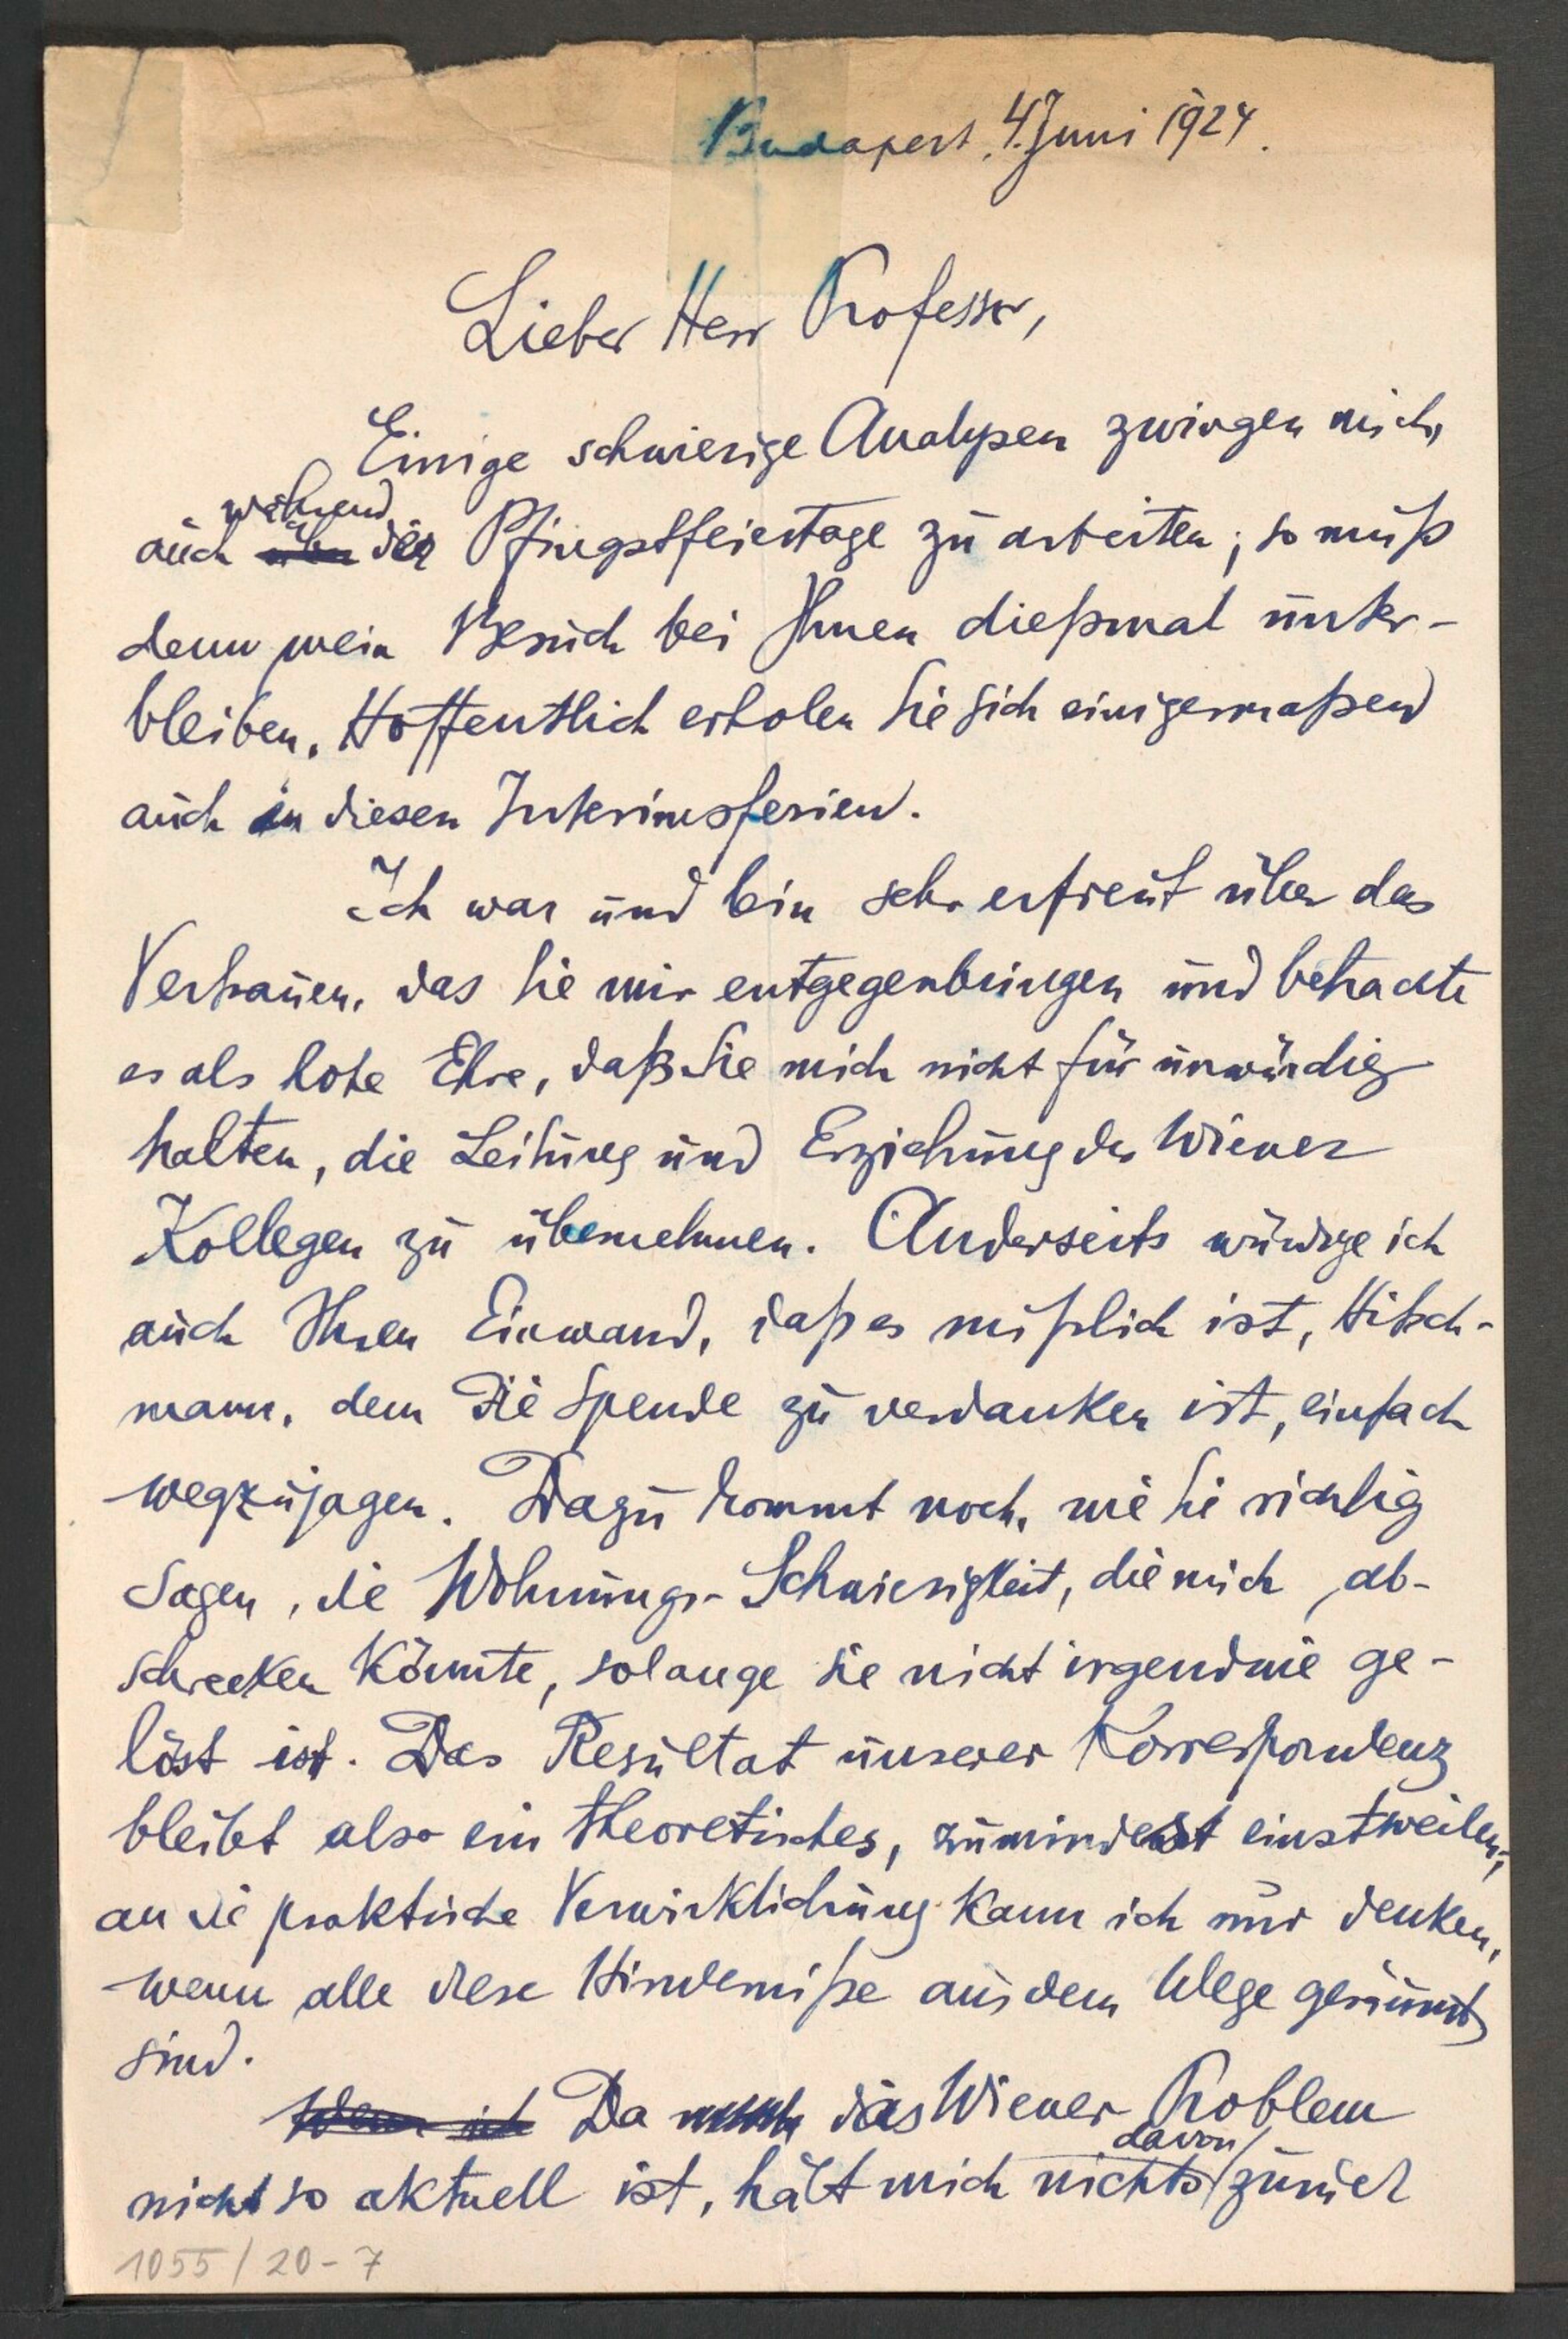 Budapest, 4. Juni 1924.
Lieber Herr Professor,
Einige schwierige Analysen zwingen mich,
während
auch über der Pfingstfeiertage zu arbeiten; so muß
denn mein Besuch bei Ihnen dießmal unter-
bleiben. Hoffentlich erholen Sie sich einigermaßen
auch in diesen Interimsferien.
Ich war und bin sehr erfreut über das
Vertrauen, das Sie mir entgegenbringen und betrachte
es als hohe Ehre, daß Sie mich nicht für unwürdig
halten, die Leitung und Erziehung der Wiener
Kollegen zu übernehmen. Anderseits würdige ich
auch Ihren Einwand, daß es mißlich ist, Hitsch-
mann, dem die Spende zu verdanken ist, einfach
wegzujagen. Dazu kommt noch, wie Sie richtig
sagen, die Wohnungs-Schwierigkeit, die mich ab-
schrecken könnte, solange sie nicht irgendwie ge-
löst ist. Das Resultat unserer Korrespondenz
bleibt also ein theoretisches, zumindest einstweilen;
an die praktische Verwirklichung kann ich nur denken,
wenn alle diese Hinderniße aus dem Wege geräumt
sind.
Wenn ich Da das Wiener Problem
davon
nicht so aktuell ist, hält mich nichts zurück
1055/20-7